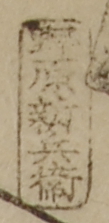 野原新兵衛